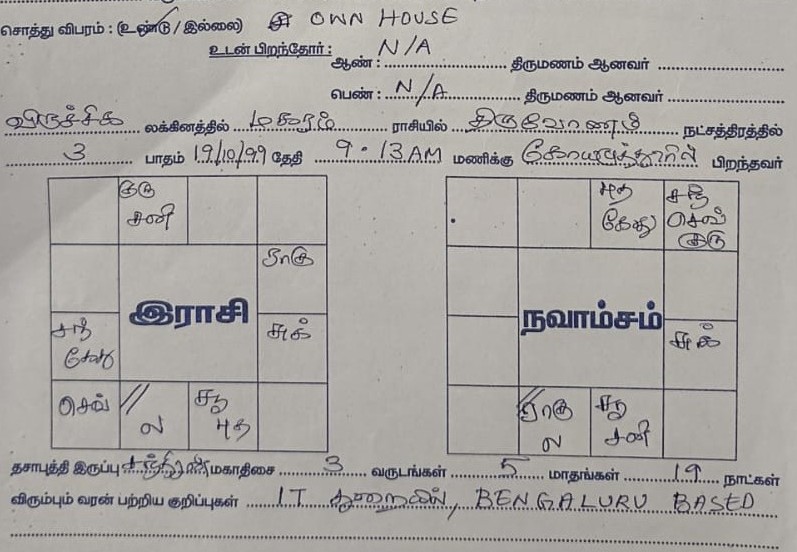 சொத்து விபரம் : (உண்டு / இல்லை) OWN HOUSE
உடன் பிறந்தோர் : N/A
ஆண் : திருமணம் ஆனவர்
பெண் : N/A திருமணம் ஆனவர்
விருச்சிக லக்கினத்தில் மகரம் ராசியில் திருவோணம் நட்சத்திரத்தில்
3 பாதம் 19/10/99 தேதி 9.13 AM மணிக்கு கோயமுத்தூரில் பிறந்தவர்
குரு சனி
ராகு
இராசி
சந் கேது
சுக்
செவ்
ல
சூ புத
புத கேது
சந் செவ் குரு
நவாம்சம்
சுக்
ராகு ல
சூ சனி
தசாபுத்தி இருப்பு சந்திரன் மகாதிசை 3 வருடங்கள் 5 மாதங்கள் 19 நாட்கள்
விரும்பும் வரன் பற்றிய குறிப்புகள் IT துறையில், BENGALURU BASED